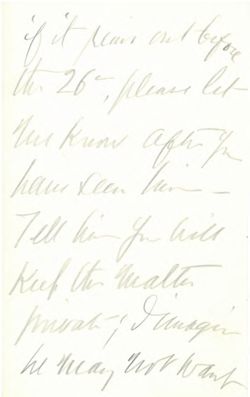 if it                out before
the 26th, please let
me know after you
have seen him —
Tell him you will
Keep this matter
private; I imagine
he may not want